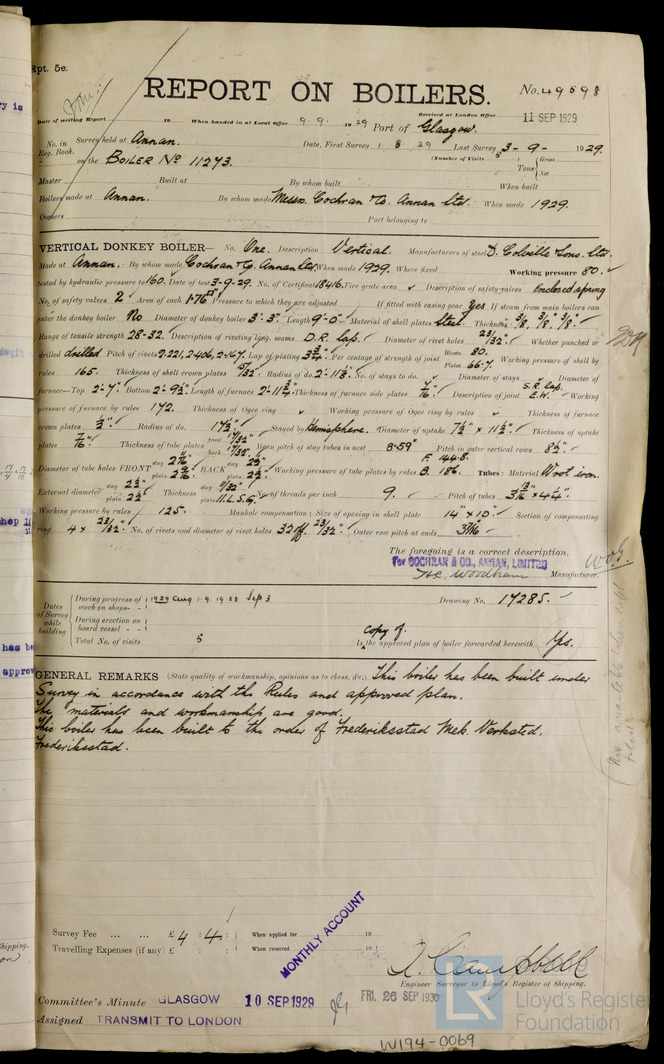 Rpt. 5e.
REPORT ON BOILERS.
No. 49598
Received at London Office
11 SEP 1929
Date of writing Report 19 When handed in at Local Office 9. 9. 1929 Port of Glasgow.
No. in Reg. Book.
Survey held at Annan. Date, First Survey 1 8 29 Last Survey 3-9- 1929.
on the BOILER No 11273. (Number of Visits 5
Tons { Gross Net
Master Built at By whom built When built
Boilers made at Annan. By whom made Messrs. Cochran & Co. Annan Ltd. When made 1929.
Owners Port belonging to
VERTICAL DONKEY BOILER— No. One. Description Vertical. Manufacturers of steel D. Colville & Sons. Ltd.
Made at Annan. By whom made Cochran & Co. Annan Ltd. When made 1929. Where fixed Working pressure 80.
tested by hydraulic pressure to 160. Date of test 3-9-29. No. of Certificate 18416. Fire grate area Description of safety valves Enclosed spring
No. of safety valves 2 Area of each 1.76 Pressure to which they are adjusted If fitted with easing gear Yes If steam from main boilers can
enter the donkey boiler No Diameter of donkey boiler 3'-3". Length 9'-0" Material of shell plates Steel. Thickness 3/8" 3/8" 3/8"
Range of tensile strength 28-32. Description of riveting long. seams D.R. Lap. Diameter of rivet holes 23/32" Whether punched or
drilled drilled Pitch of rivets 2.221, 2.406, 2.467. Lap of plating 3 3/4" Per centage of strength of joint Rivets 80. Plates 66.7. Working pressure of shell by
rules 165. Thickness of shell crown plates 15/32" Radius of do. 2'-11 1/2". No. of stays to do. Diameter of stays Diameter of
furnace—Top 2'-7". Bottom 2'-9 1/2". Length of furnace 2'-11 3/4" Thickness of furnace side plates 7/16" Description of joint S.R. Lap. E.W. Working
pressure of furnace by rules 172. Thickness of Ogee ring Working pressure of Ogee ring by rules Thickness of furnace
crown plates 1/2" Radius of do. 17 1/2" Stayed by Hemisphere. Diameter of uptake 7 1/2" x 11 1/2" Thickness of uptake
plates 7/16" Thickness of tube plates front 17/32" back 17/32" Mean pitch of stay tubes in nest 8.59" Pitch in outer vertical rows 8 1/2"
Diameter of tube holes FRONT stay plain BACK stay plain Working pressure of tube plates by rules F. 144.8. B. 186. Tubes: Material Wrot iron.
External diameter stay 2 1/2" plain 2 1/2" Thickness stay plain 11 L.S.G. No. of threads per inch 9. Pitch of tubes
Working pressure by rules 125. Manhole compensation: Size of opening in shell plate 14" x 10" Section of compensating
ring 4 x 23/32" No. of rivets and diameter of rivet holes 32 off 23/32" Outer row pitch at ends 3 7/16"
The foregoing is a correct description,
For COCHRAN & CO., ANNAN, LIMITED
H.C. Woodham Manufacturer.
Dates of Survey while building
During progress of work in shops - - 1929 Aug 1. 9. 19. 28 Sep 3 Drawing No. 17285.
During erection on board vessel - - -
Total No. of visits 5 Is the copy of approved plan of boiler forwarded herewith Yes.
GENERAL REMARKS (State quality of workmanship, opinions as to class, &c.) This boiler has been built under
Survey in accordance with the Rules and approved plan.
The materials and workmanship are good.
This boiler has been built to the order of Frederiksstad Mek. Verksted.
Frederiksstad.
Survey Fee ... ... £ 4 : 4 : When applied for 19
Travelling Expenses (if any) £ When received 19
MONTHLY ACCOUNT
A. Campbell
Engineer Surveyor to Lloyd's Register of Shipping.
Committee's Minute GLASGOW 10 SEP 1929 FRI. 26 SEP 1930
Assigned TRANSMIT TO LONDON
LR Lloyd's Register Foundation
W194-0069